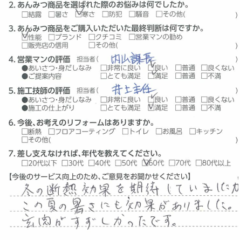 2. あんみつ商品を選ばれた際のお悩みは何でしたか。
□結露 □暑さ ☑寒さ □防犯 □騒音 □その他( )
3. あんみつ商品をご購入いただいた最終判断は何ですか。
☑性能 □ブランド □クチコミ □営業マンの勧め
□販売店の信用 □その他( )
4. 営業マンの評価 担当者( )
●あいさつ・身だしなみ □非常に良い ☑良い □普通 □良くない
●ご提案内容 □とても満足 ☑満足 □普通 □不満
5. 施工技師の評価 担当者( 井上主任 )
●あいさつ・身だしなみ □非常に良い ☑良い □普通 □良くない
●施工の仕上がり □とても満足 ☑満足 □普通 □不満
6. 今後、お考えのリフォームはありますか。
□断熱 □フロアコーティング □トイレ □お風呂 □キッチン
□その他( )
7. 差し支えなければ、年代を教えてください。
□20代以下 □30代 □40代 □50代 ☑60代 □70代 □80代以上
【今後のサービス向上のため、ご意見をお聞かせください】
冬の断熱効果を期待していましたが
この夏の暑さにも効果がありました。
玄関がすずしかったです。